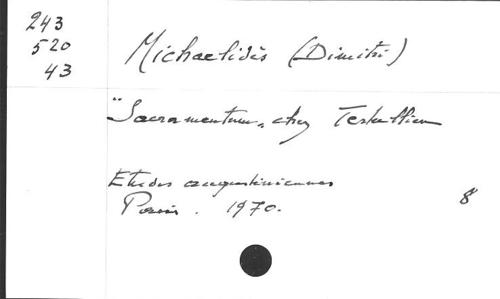 243
520
43
Michaelidès (Dimitri)
"Sacramentum" chez Tertullien
Etudes augustiniennes
Paris. 1970.
8